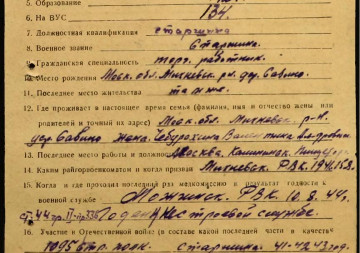 5. Образование
6. На ВУС 134.
7. Должностная квалификация старшина
8. Военное звание Старшина.
9. Гражданская специальность торг. работник.
10. Место рождения Моск. обл. Михневс. р-н. дер. Савино.
11. Последнее место жительства там же.
12. Где проживает в настоящее время семья (фамилия, имя и отчество жены или
родителей и точный их адрес) Моск. обл. Михневск. р-н
дер Савино жена. Валентина
13. Последнее место работы и должность Москва. Калининск.
14. Каким райгорвоенкоматом и когда призван Михневск. РВК. 1941
15. Когда и где проходил последний раз медкомиссию и результат годности к
военной службе РВК. 10.8.44г.
ст. 44 гр. II пр 336 Годен нестроевой службе.
16. Участие в Отечественной войне (в составе какой последней части и в качестве
1095 стр. полк. старшина. 41-42 43 год.